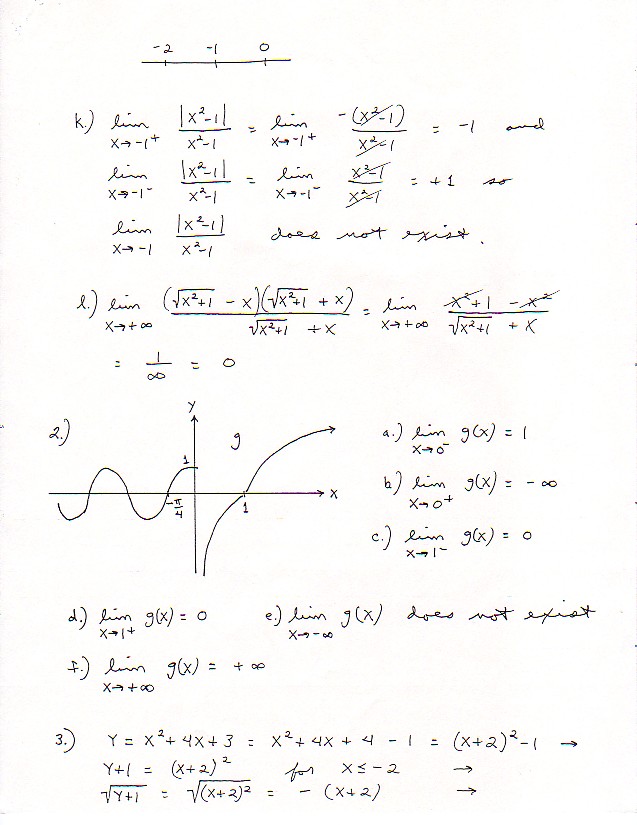 -2 -1 0
k.) lim x→-1⁺ |x²-1| / x²-1 = lim x→-1⁺ -(x²-1) / x²-1 = -1 and
lim x→-1⁻ |x²-1| / x²-1 = lim x→-1⁻ x²-1 / x²-1 = +1 so
lim x→-1 |x²-1| / x²-1 does not exist.
l.) lim x→+∞ (√x²+1 - x)(√x²+1 + x) / √x²+1 + x = lim x→+∞ x²+1 - x² / √x²+1 + x
= 1/∞ = 0
2.)
Y
g
1
-π/4
1
X
a.) lim x→0⁻ g(x) = 1
b.) lim x→0⁺ g(x) = -∞
c.) lim x→1⁻ g(x) = 0
d.) lim x→1⁺ g(x) = 0 e.) lim x→-∞ g(x) does not exist
f.) lim x→+∞ g(x) = +∞
3.) Y = x²+4x+3 = x²+4x+4-1 = (x+2)²-1 →
Y+1 = (x+2)² for x≤-2 →
√Y+1 = √(x+2)² = -(x+2) →